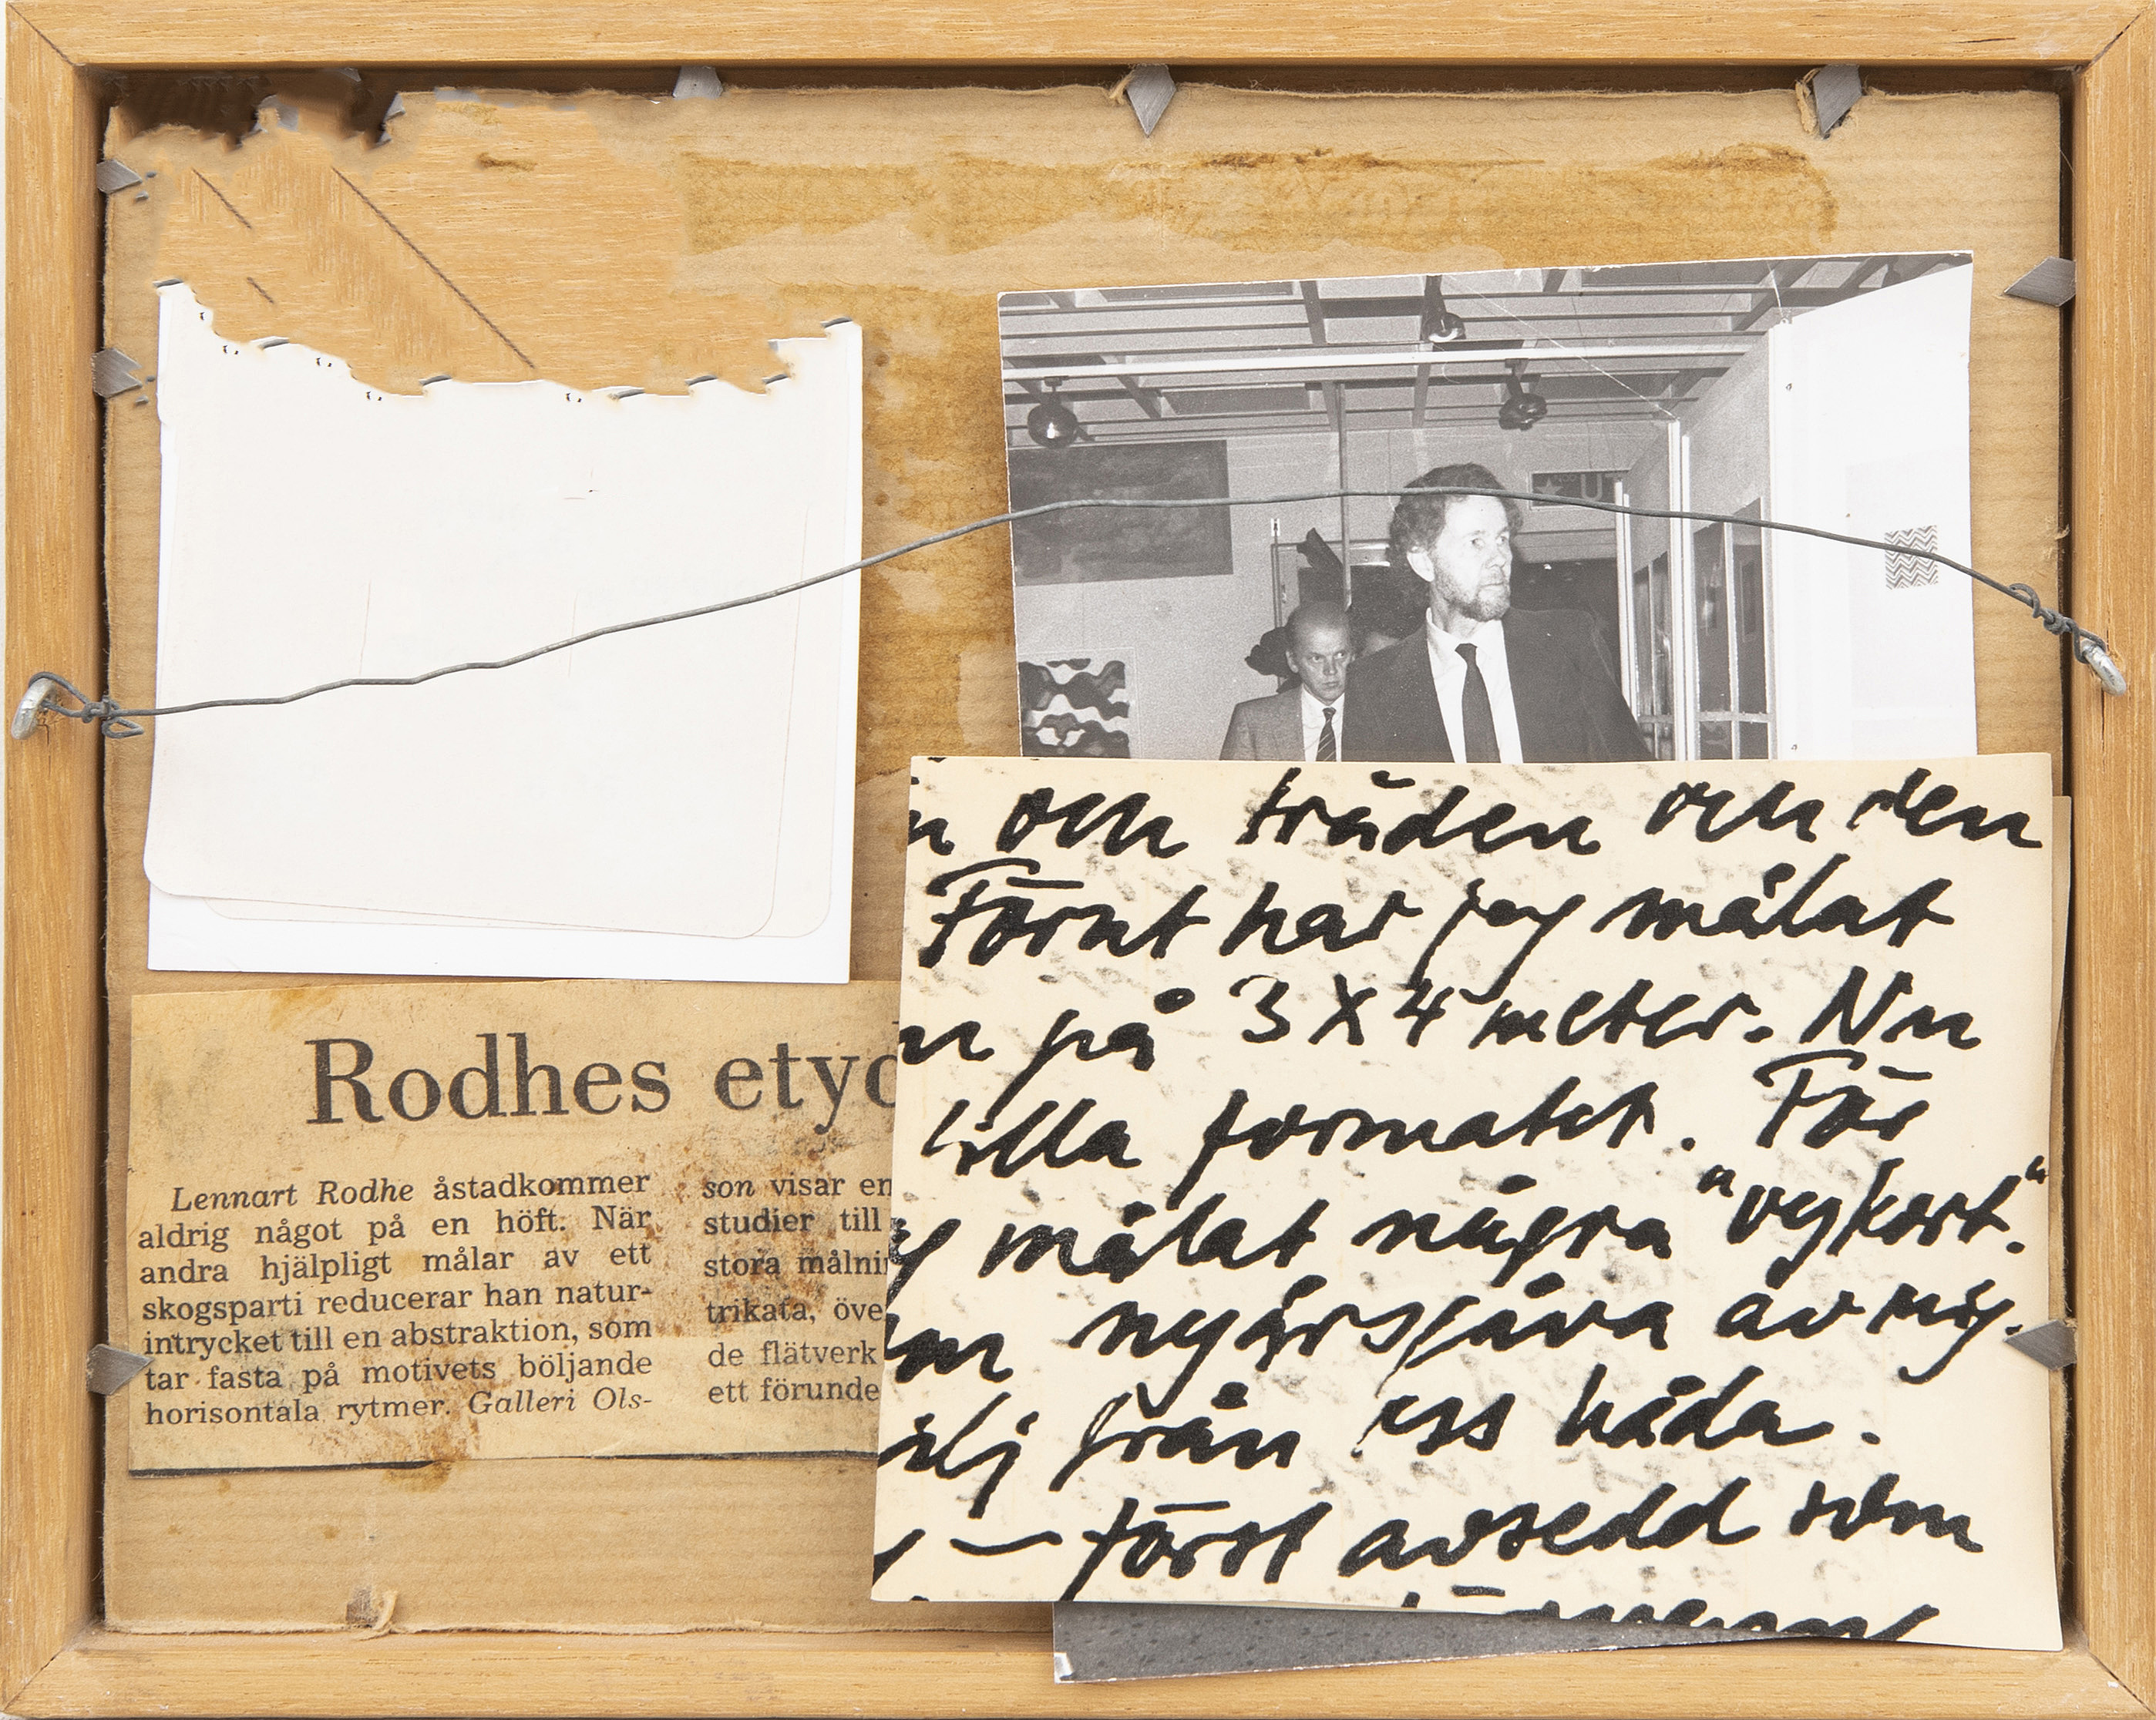 Rodhes etyd
Lennart Rodhe åstadkommer
aldrig något på en höft. När
andra hjälpligt målar av ett
skogsparti reducerar han natur-
intrycket till en abstraktion, som
tar fasta på motivets böljande
horisontala rytmer. Galleri Ols-
son visar en
studier till
stora målni
trikata, öve
de flätverk
ett förunde
och tråden och den
Förut har jag målat
på 3 X 4 meter. Nu
lilla formatet. För
målat några "vykort."
nyårsgåva av mig.
från oss båda.
– först avsedd som